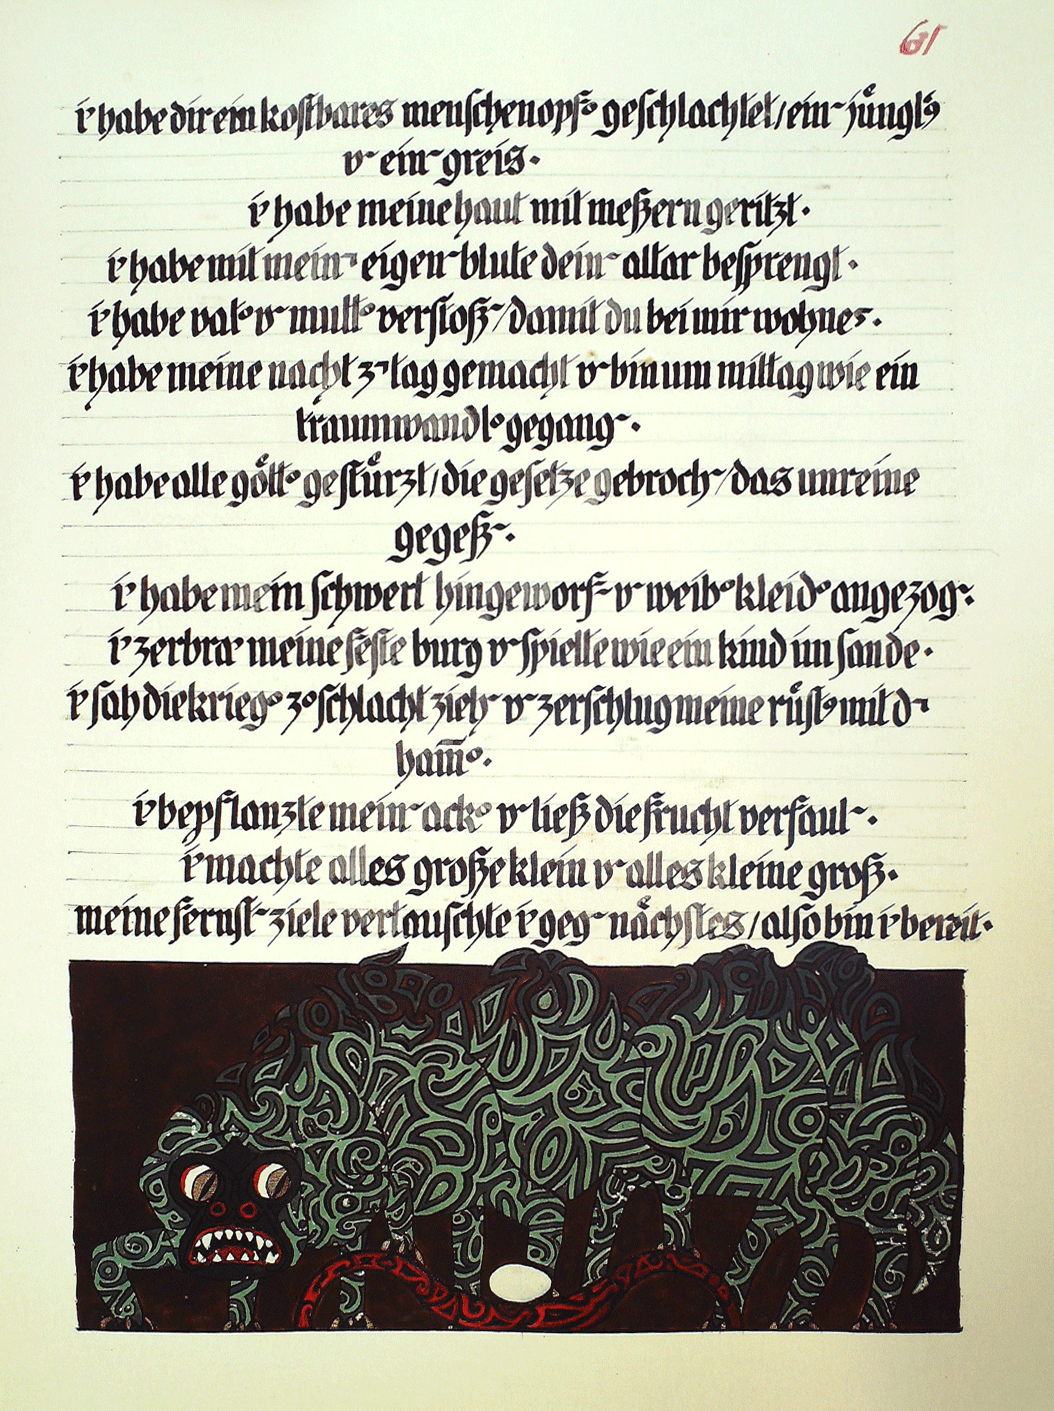 61
i habe dir ein kostbares menschenopf geschlachtet/ein jüngl
v ein greis.
i habe meine haut mit meßern geritzt.
i habe mit mein eigen blute dein altar besprengt.
i habe vat v mutt verstoß/damit du bei mir wohnes.
i habe meine nacht z tag gemacht v bin um mittag wie ein
traumwandl gegang.
i habe alle gött gestürzt/die gesetze gebroch/das unreine
gegeß.
i habe mein schwert hingeworf v weib kleid angezog.
i zerbra meine feste burg v spielte wie ein kind im sande.
i sah die krieg z schlacht zieh v zerschlug meine rüst mit d
ham̅.
i bepflanzte mein ack v ließ die frucht verfaul.
i machte alles große klein v alles kleine groß.
meine fernst ziele vertauschte i geg nächstes/also bin i bereit.